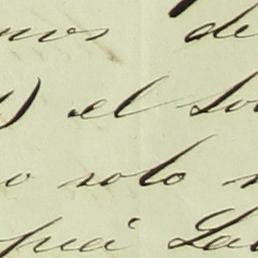 mos de
) el So
o solo
qui La